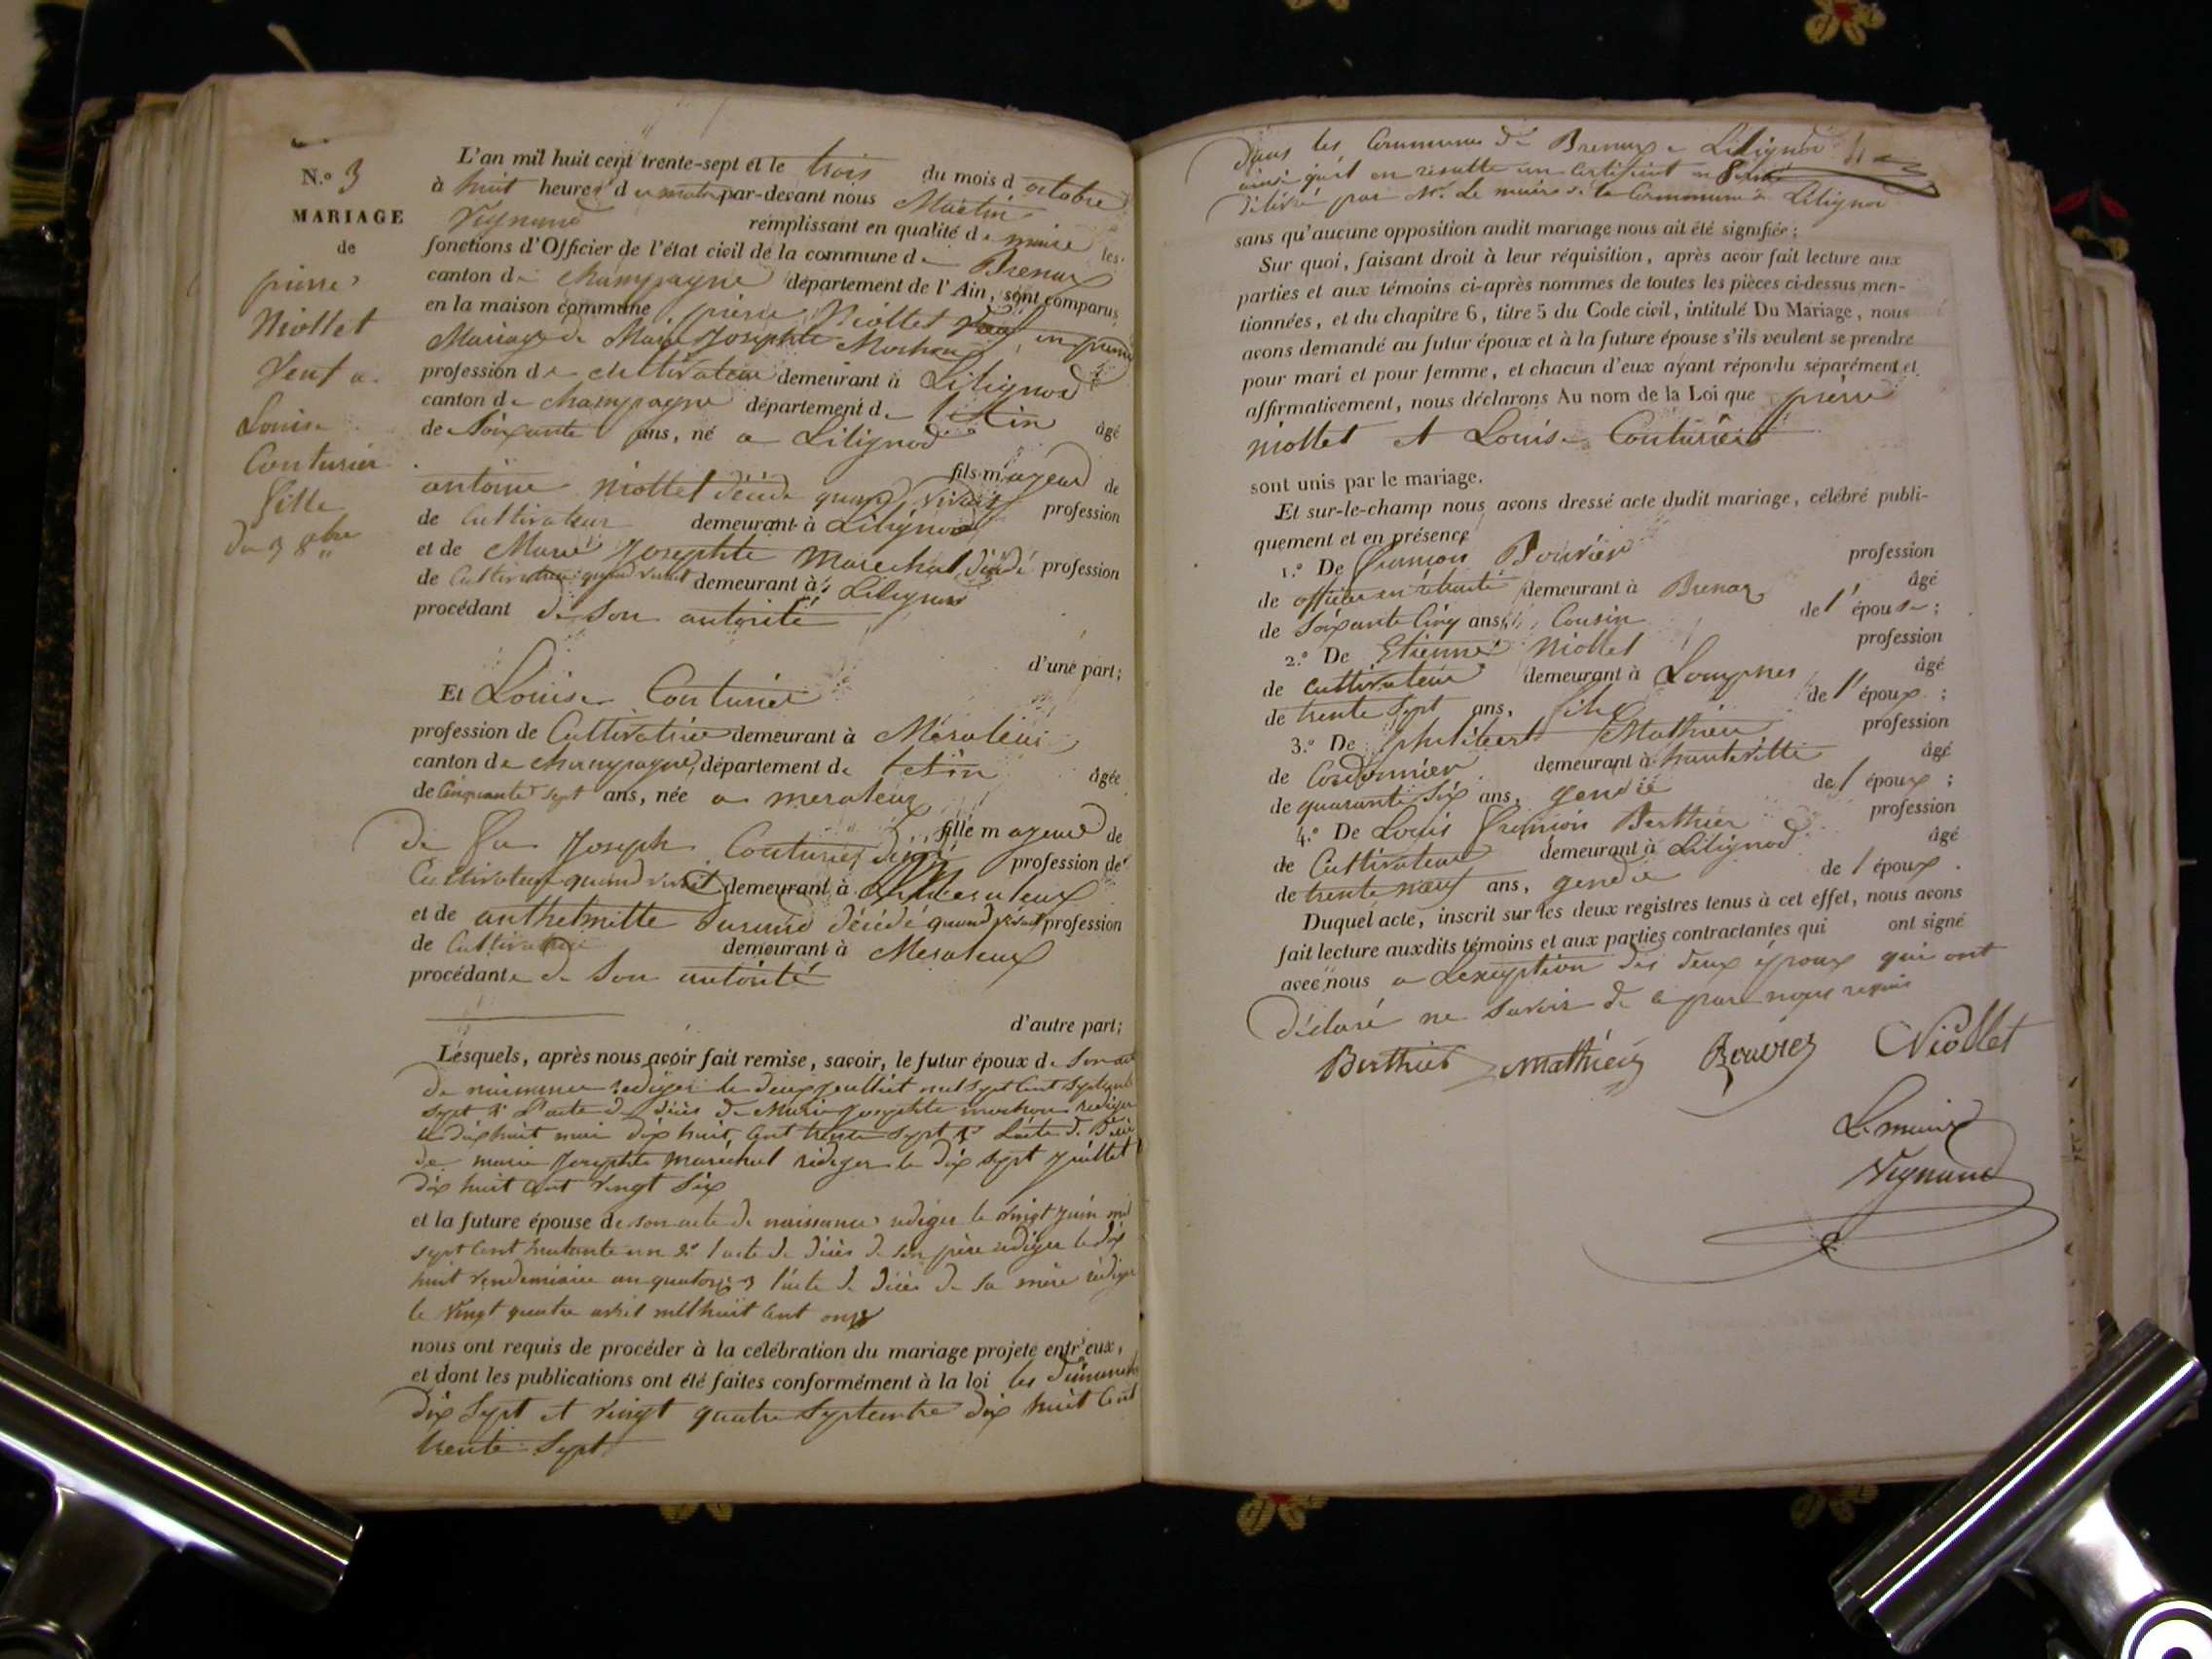 N.o 3
MARIAGE
de
pierre
Niollet
Veuf a
Louise
Couturier
fille
du 3 8bre
L'an mil huit cent trente-sept et le trois du mois d octobre
à huit heures d u matin par-devant nous Martin
Vignand remplissant en qualité de maire les
fonctions d'Officier de l'état civil de la commune de Brenaz
canton de champagne département de l'Ain, sont comparus
en la maison commune pierre Niollet veuf en premier
Mariage de Marie Josephte Mochon
profession de cultivateur demeurant à Lilignod
canton de champagne département de l'Ain âgé
de Soixante ans, né a Lilignod
fils majeur de
antoine Niollet décédé quand vivait profession
de Cultivateur demeurant à Lilignod
et de Marie Josephte Marechal décédé profession
de Cultivatrice quand vivait demeurant à Lilignod
procédant de son autorité
d'une part;
Et Louise Couturier
profession de Cultivatrice demeurant à Méraleux
canton de champagne, département de l'Ain âgée
de Cinquante sept ans, née a meraleux
fille majeure de
De feu Joseph Couturier profession de
Cultivateur quand vivait demeurant à Meraleux
et de anthelmette Durand décédé quand vivait profession
de Cultivatrice demeurant à Meraleux
procédante de Son autorité
d'autre part;
Lesquels, après nous avoir fait remise, savoir, le futur époux de Son acte
de naissance rediger le deux juillet mil sept Cent septante
sept 2° l'acte de décès de Marie Josephte mochon rediger
le dix huit mai dix huit Cent trente sept 3° l'acte de décès
de marie Josephte maréchal rediger le dix sept juillet
dix huit Cent vingt Six
et la future épouse de son acte de naissance rediger le vingt juin mil
sept Cent huitante un 2° l'acte de décès de son père rediger le dix
huit vendemiaire an quatorze 3 l'acte de décès de sa mère rediger
le vingt quatre avril mil huit Cent onze
nous ont requis de procéder à la célébration du mariage projeté entr'eux,
et dont les publications ont été faites conformément à la loi les dimanches
dix Sept et vingt quatre Septembre dix huit Cent
trente Sept
Dans les Communes de Brenaz e Lilignod
ainsi qu'il en résulte un certificat
délivré par Mr Le maire de la Commune de Lilignod
sans qu'aucune opposition audit mariage nous ait été signifiée;
Sur quoi, faisant droit à leur réquisition, après avoir fait lecture aux
parties et aux témoins ci-après nommes de toutes les pièces ci-dessus men-
tionnées, et du chapitre 6, titre 5 du Code civil, intitulé Du Mariage, nous
avons demandé au futur époux et à la future épouse s'ils veulent se prendre
pour mari et pour femme, et chacun d'eux ayant répondu séparément et
affirmativement, nous déclarons Au nom de la Loi que pierre
niollet et Louise Couturier
sont unis par le mariage.
Et sur-le-champ nous avons dressé acte dudit mariage, célébré publi-
quement et en présence
1.° De François Bouvier profession
de officier en retraite demeurant à Brenaz âgé
de Soixante Cinq ans, Cousin de l'épouse;
2.° De Etienne Niollet profession
de cultivateur demeurant à Lompnes âgé
de trente Sept ans, fils de l'époux;
3.° De philibert Mathieu profession
de Cordonnier demeurant à hauteville âgé
de quarante Six ans, gendre de l époux;
4.° De Louis François Berthier profession
de Cultivateur demeurant à Lilignod âgé
de trente neuf ans, gendre de l époux.
Duquel acte, inscrit sur les deux registres tenus à cet effet, nous avons
fait lecture auxdits témoins et aux parties contractantes qui ont signé
avec nous a Lexception des deux époux qui ont
déclaré ne Savoir de ce par nous requis
Berthier Mathieu Bouvier Niollet
Le maire
Vignand